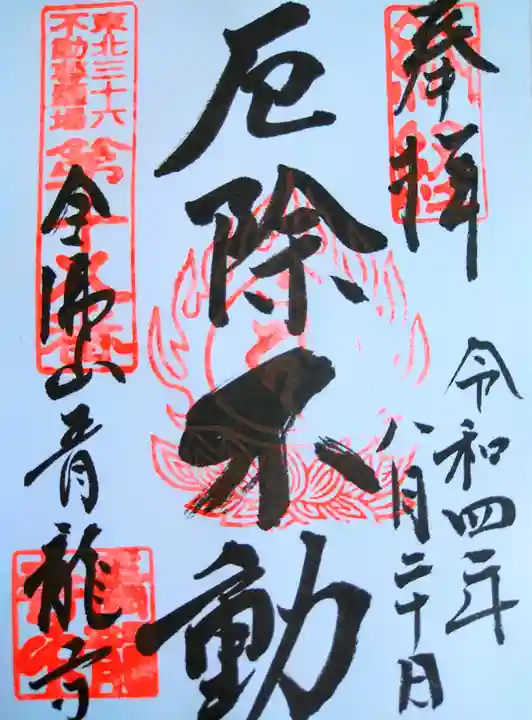 奉拝
令和四年
八月二十日
厄除不動
東北三十六
不動尊霊場
全佛山青龍寺